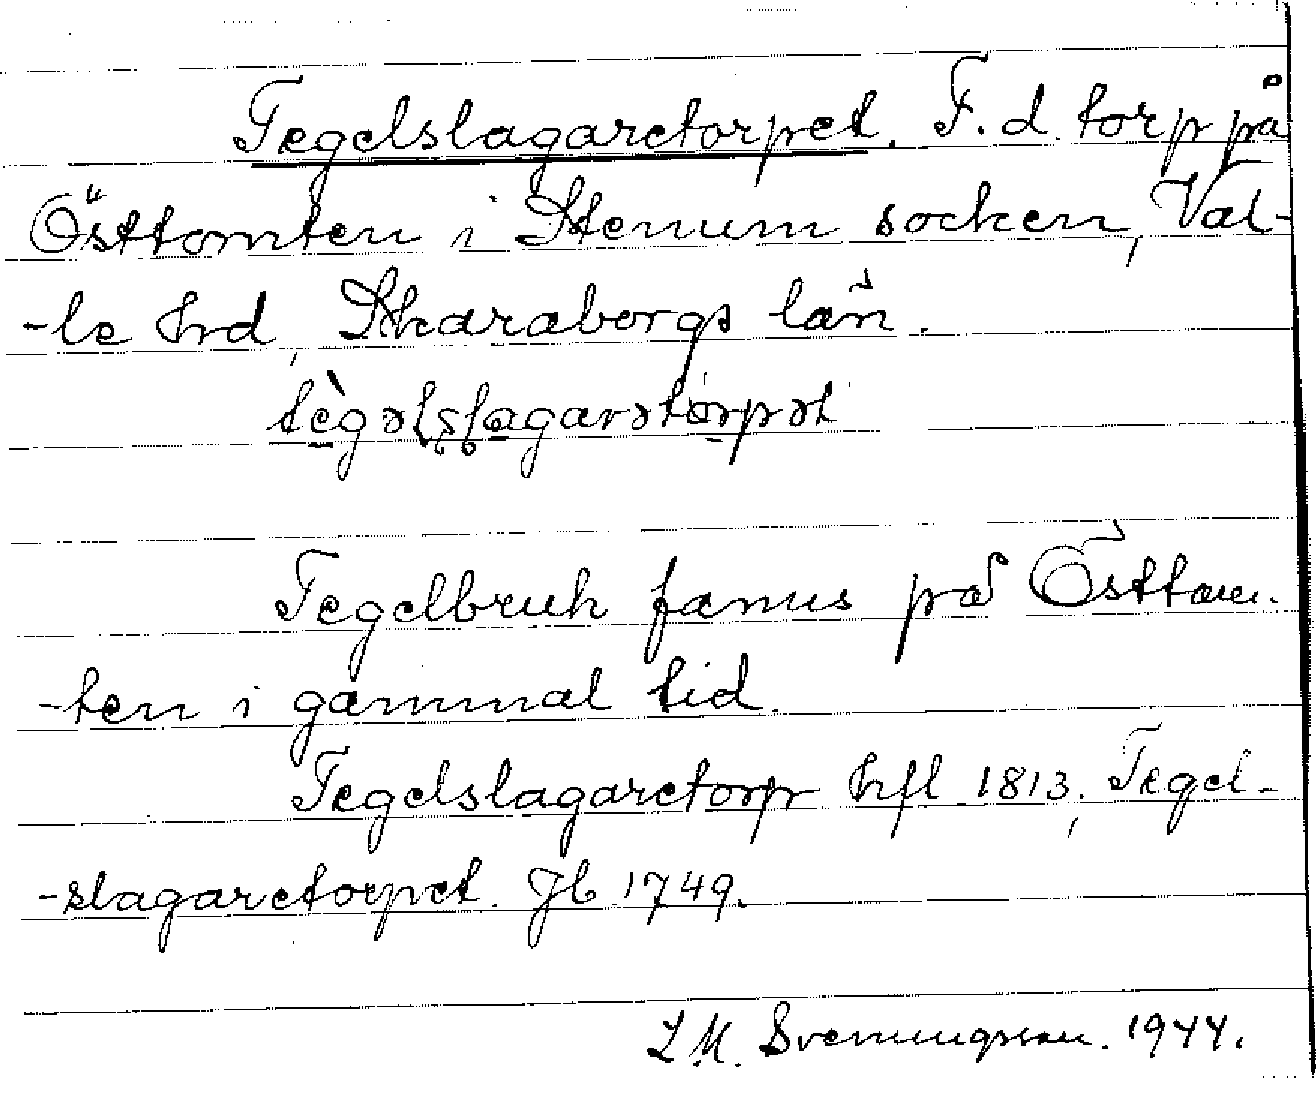 Tegelslagaretorpet. F.d. torp på
Östtomten i Stenum socken, Val-
-le hrd, Skaraborgs län.
tègəlslagarətorpət
Tegelbruk fanns på Östtom-
-ten i gammal tid.
Tegelslagaretorp hfl 1813, Tegel-
-slagaretorpet. Jb 1749.
L M. Svenungsson. 1944.